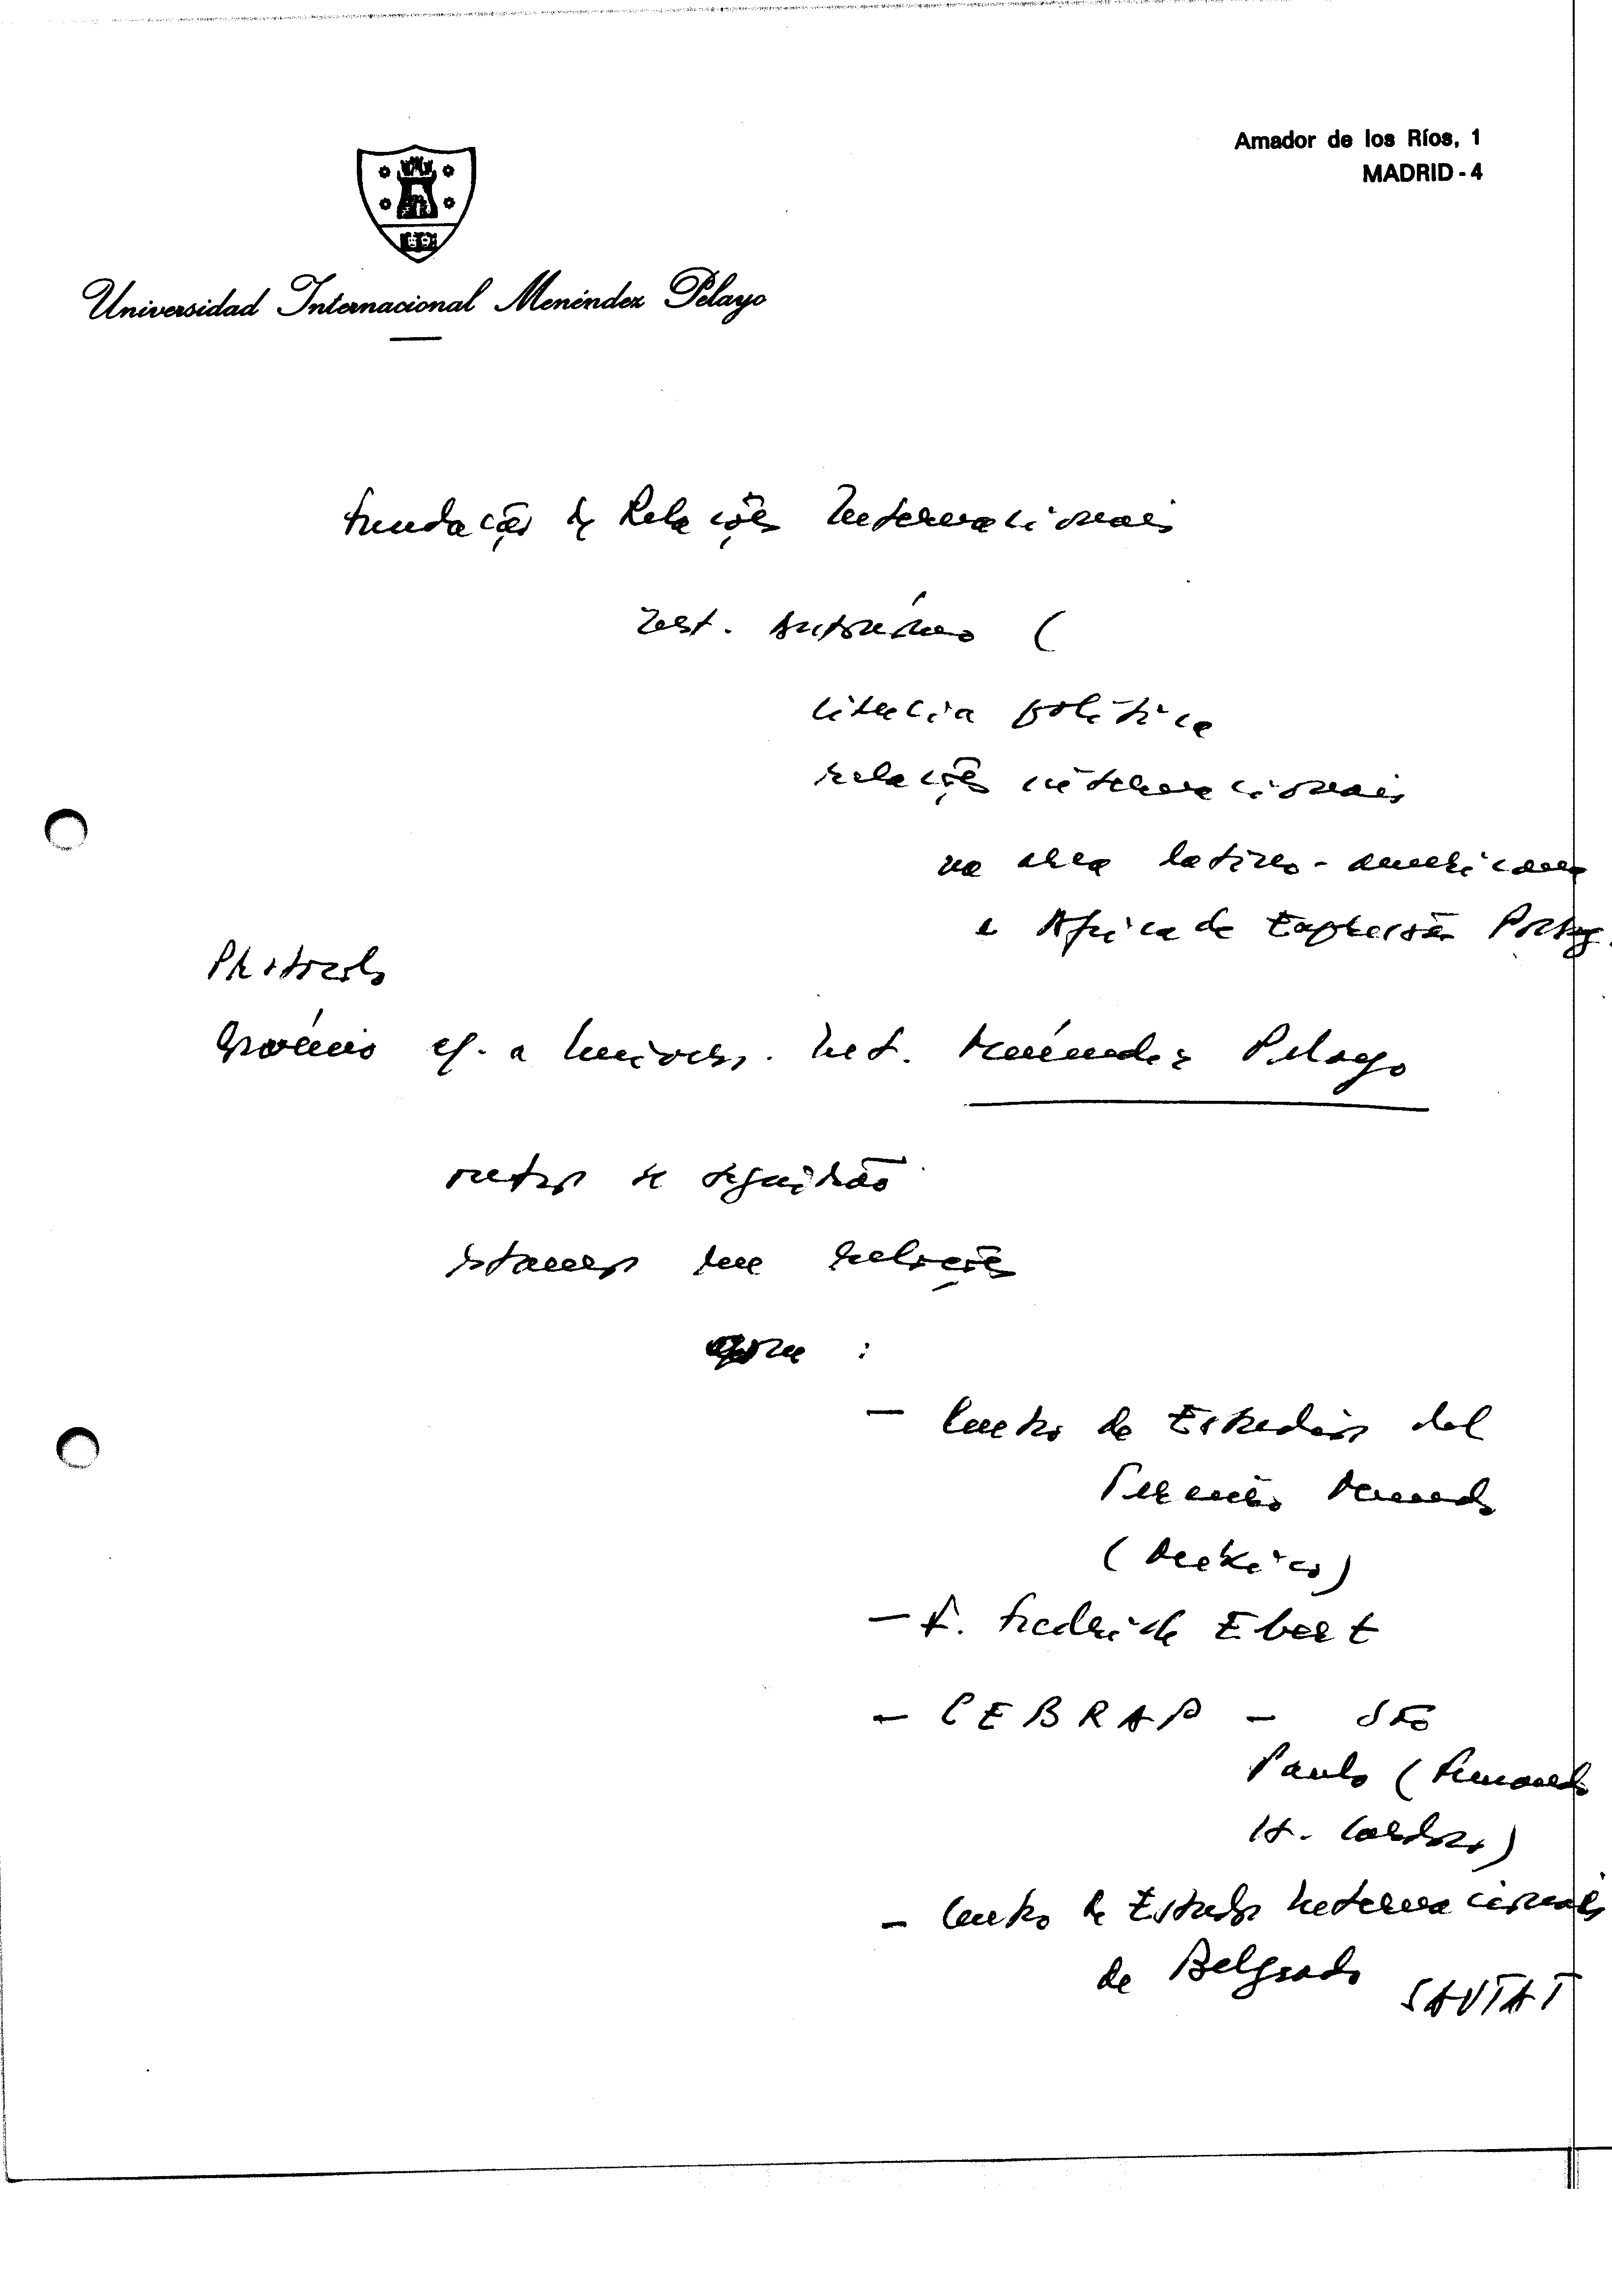 Amador de los Ríos, 1
MADRID - 4
Universidad Internacional Menéndez Pelayo
Fundação de Relações Internacionais
Inst. Autónomo (
ciencia política
relações internacionais
na area latino-americana
e Africa de Expressão Portug.
Protocolo
cf. a Univers. Int. Menéndez Pelayo
outros se seguirão
estamos em relações
com :
- Centro de Estudios del
Terceiro Mundo
(Mexico)
- F. Friedrich Ebert
- CEBRAP - São
Paulo (Fernando
H. Cardoso)
- Centro de Estudos Internacionais
de Belgrado